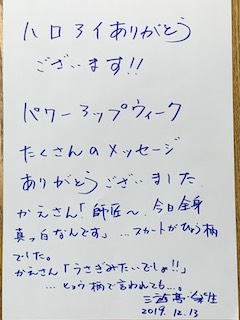 ハロアイありがとう
ございます!!
パワーアップウィーク
たくさんのメッセージ
ありがとうございました
かえさん「師匠〜、今日全身
真っ白なんです」…スカートがひょう柄
でした。
かえさん「うさぎみたいでしょ!!」
…ヒョウ柄で言われても…。
2019. 12. 13